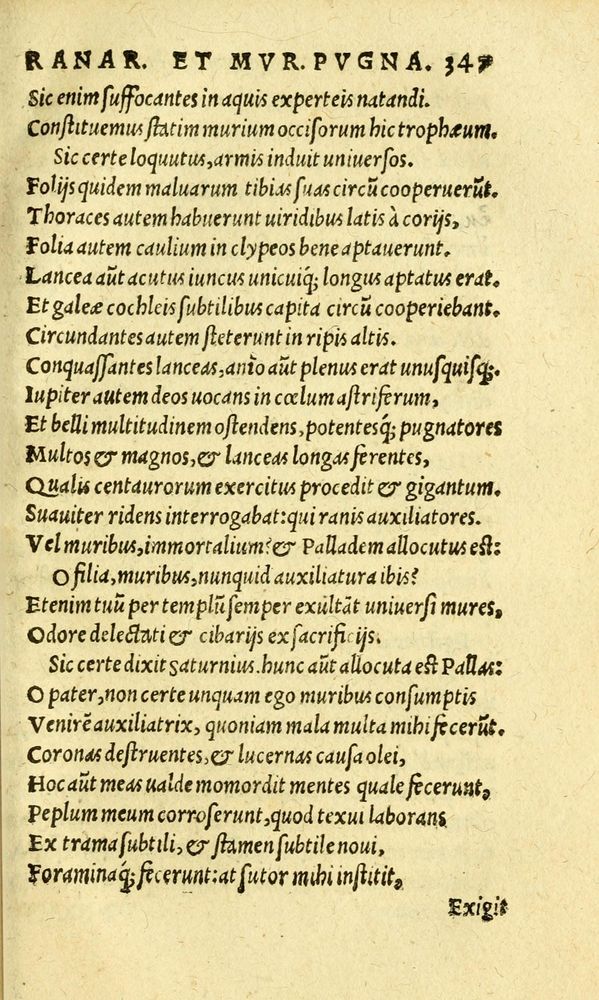 RANAR. ET MVR. PVGNA. 347
Sic enim suffocantes in aquis experteis natandi.
Constituemus statim murium occisorum hic trophæum.
Sic certe loquutus, armis induit uniuersos.
Folijs quidem maluarum tibias suas circũ cooperuerũt.
Thoraces autem habuerunt uiridibus latis à corijs,
Folia autem caulium in clypeos bene aptauerunt.
Lancea aũt acutus iuncus unicuiq; longus aptatus erat.
Et galeæ cochleis subtilibus capita circũ cooperiebant.
Circundantes autem steterunt in ripis altis.
Conquassantes lanceas, anĩo aũt plenus erat unusquisq;.
Iupiter autem deos uocans in cœlum astriferum,
Et belli multitudinem ostendens, potentesq; pugnatores
Multos & magnos, & lanceas longas ferentes,
Qualis centaurorum exercitus procedit & gigantum.
Suauiter ridens interrogabat: qui ranis auxiliatores.
Vel muribus, immortalium? & Palladem allocutus est:
O filia, muribus, nunquid auxiliatura ibis?
Etenim tuũ per templũ semper exultãt uniuersi mures,
Odore delectati & cibarijs ex sacrificijs.
Sic certe dixit saturnius. hunc aũt allocuta est Pallas:
O pater, non certe unquam ego muribus consumptis
Venirẽ auxiliatrix, quoniam mala multa mihi fecerũt.
Coronas destruentes, & lucernas causa olei,
Hoc aũt meas ualde momordit mentes quale fecerunt,
Peplum meum corroserunt, quod texui laborans
Ex trama subtili, & stamen subtile noui,
Foraminaq; fecerunt: at sutor mihi institit,
Exigit